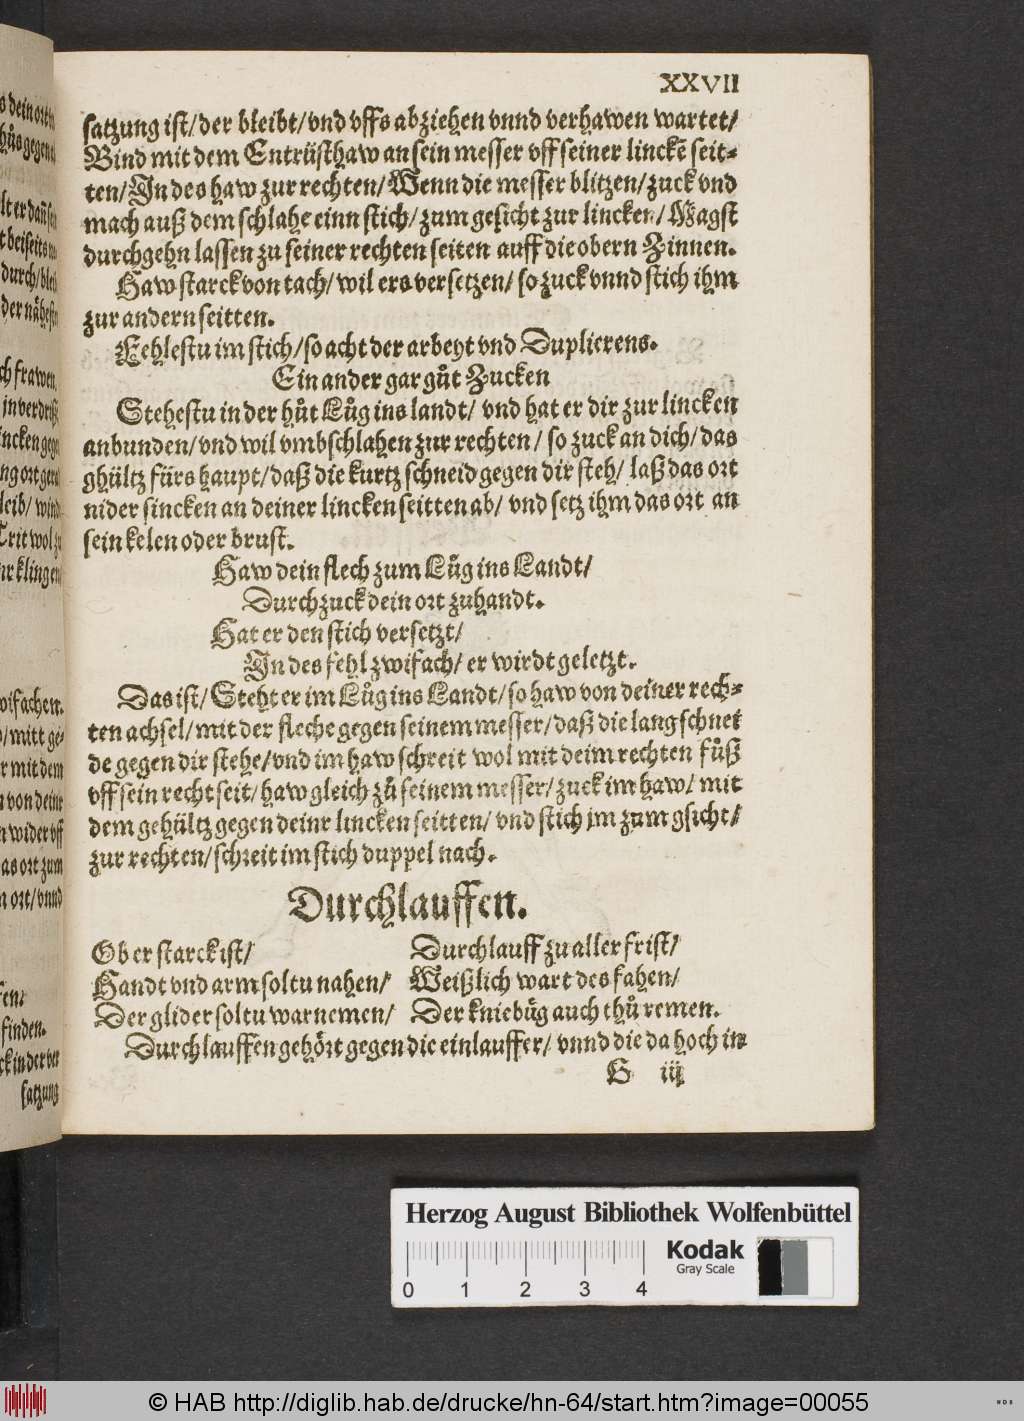 XXVII
satzung ist/der bleibt/vnd vffs abziehen vnnd verhawen wartet/
Bind mit dem Entrüsthaw an sein messer vff seiner linckē seit-
ten/Jn des haw zur rechten/Wenn die messer blitzen/zuck vnd
mach auß dem schlahe einn stich/zum gesicht zur lincken/Magst
durchgehn lassen zu seiner rechten seiten auff die obern Zinnen.
Haw starck von tach/wil ers versetzen/so zuck vnnd stich ihm
zur andern seitten.
Fehlestu im stich/so acht der arbeyt vnd Duplierens.
Ein ander gar gůt Zucken
Stehestu in der hůt Lůg ins landt/vnd hat er dir zur lincken
anbunden/vnd wil vmbschlahen zur rechten/so zuck an dich/das
ghültz fürs haupt/daß die kurtz schneid gegen dir steh/laß das ort
nider sincken an deiner lincken seitten ab/vnd setz ihm das ort an
sein kelen oder brust.
Haw dein flech zum Lůg ins Landt/
Durchzuck dein ort zuhandt.
Hat er den stich versetzt/
Jn des fehl zwifach/er wirdt geletzt.
Das ist/Steht er im Lůg ins Landt/so haw von deiner rech-
ten achsel/mit der fleche gegen seinem messer/daß die lang schnei
de gegen dir stehe/vnd im haw schreit wol mit deim rechten fůß
vff sein recht seit/haw gleich zů seinem messer/zuck im haw/mit
dem gehültz gegen deinr lincken seitten/vnd stich jm zum gsicht/
zur rechten/schreit im stich duppel nach.
Durchlauffen.
Ob er starck ist/
Handt vnd arm soltu nahen/
Der glider soltu warnemen/
Durchlauff zu aller frist/
Weißlich wart des fahen/
Der kniebüg auch thů remen.
Durchlauffen gehört gegen die einlauffer/vnnd die da hoch in
H iij
satzung
Herzog August Bibliothek Wolfenbüttel
0 1 2 3 4
Kodak
Gray Scale
© HAB http://diglib.hab.de/drucke/hn-64/start.htm?image=00055